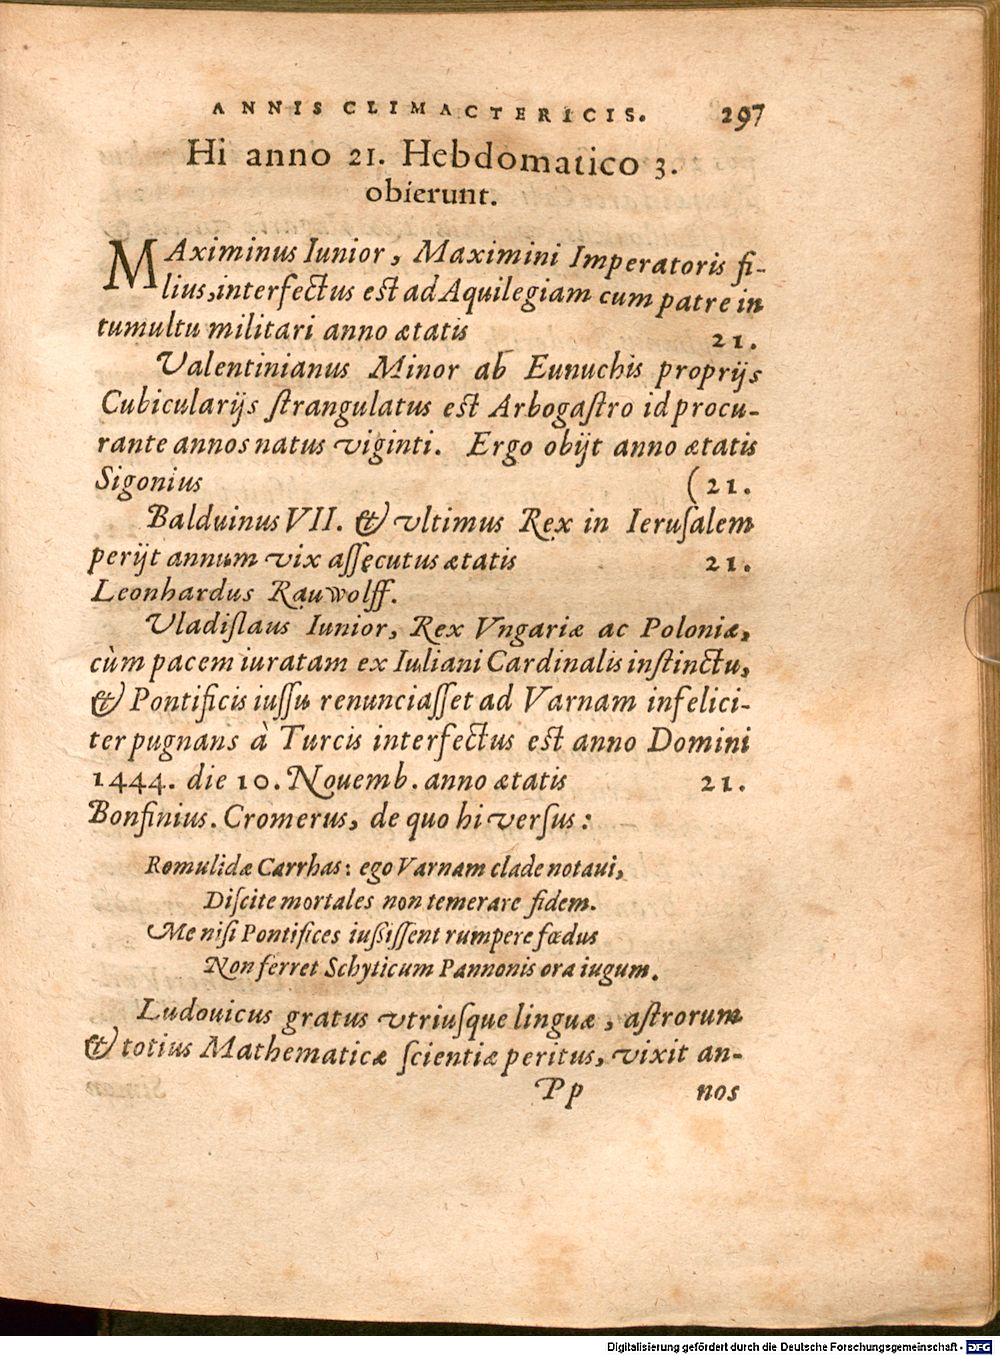 ANNIS CLIMACTERICIS. 297
Hi anno 21. Hebdomatico 3.
obierunt.
MAximinus Iunior, Maximini Imperatoris fi-
lius, interfectus est ad Aquilegiam cum patre in
tumultu militari anno ætatis 21.
Valentinianus Minor ab Eunuchis proprijs
Cubicularijs ſtrangulatus eſt Arbogaſtro id procu-
rante annos natus viginti. Ergo obijt anno ætatis
Sigonius (21.
Balduinus VII. & vltimus Rex in Ieruſalem
perijt annum vix aſſęcutus ætatis 21.
Leonhardus Rauwolff.
Vladiſlaus Iunior, Rex Vngariæ ac Poloniæ,
cùm pacem iuratam ex Iuliani Cardinalis inſtinctu,
& Pontificis iuſſu renunciaſſet ad Varnam infelici-
ter pugnans à Turcis interfectus eſt anno Domini
1444. die 10. Nouemb. anno ætatis 21.
Bonfinius. Cromerus, de quo hi verſus:
Romulidæ Carrhas: ego Varnam clade notaui,
Diſcite mortales non temerare fidem.
Me niſi Pontifices iußiſſent rumpere fœdus
Non ferret Schyticum Pannonis ora iugum.
Ludouicus gratus vtriuſque linguæ, aſtrorum
& totius Mathematicæ ſcientiæ peritus, vixit an-
Pp nos
Digitalisierung gefördert durch die Deutsche Forschungsgemeinschaft - DFG